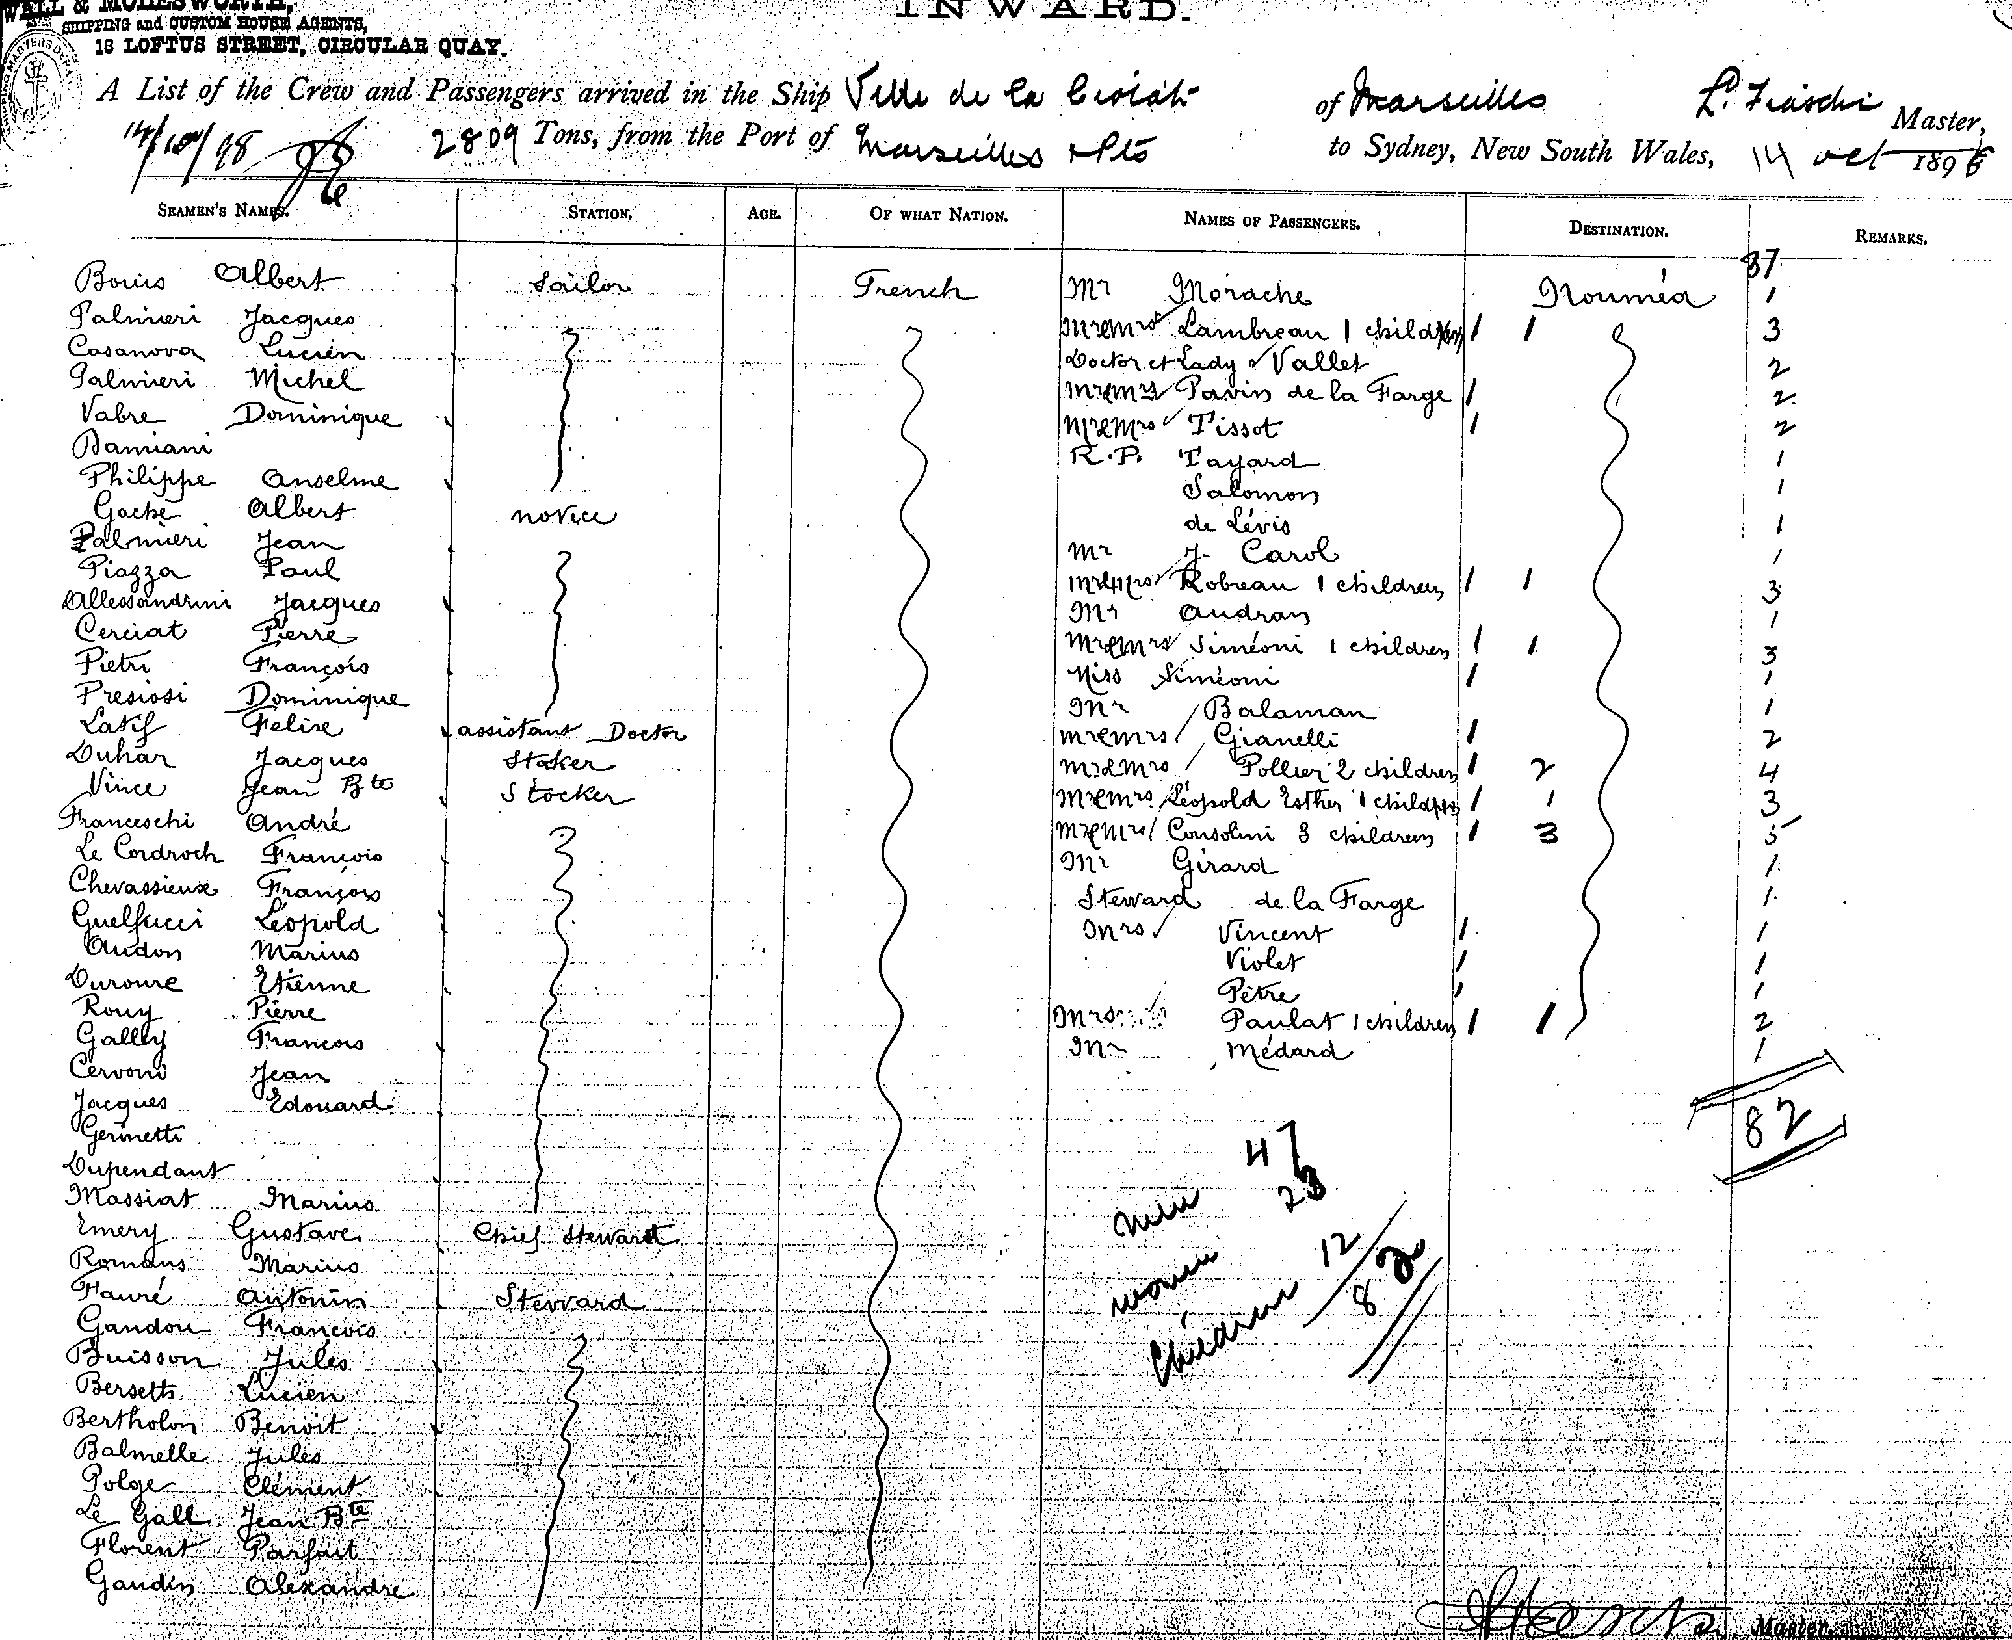 INWARD.
SHIPPING and CUSTOM HOUSE AGENTS,
18 LOFTUS STREET, CIRCULAR QUAY.
A List of the Crew and Passengers arrived in the Ship Ville de la Ciotat of Marseilles L. Fiaschi Master,
14/10/98 2809 Tons, from the Port of Marseilles & Pts to Sydney, New South Wales, 14 Oct 1898
SEAMEN'S NAMES. STATION. AGE. OF WHAT NATION. NAMES OF PASSENGERS. DESTINATION. REMARKS.
37
Bouis Albert Sailor French Mr Morache Nouméa 1
Palmieri Jacques Mr & Mrs Lambreau 1 children 1 1 3
Casanova Lucien Doctor et Lady Vallet 2
Palmieri Michel Mr & Mrs Pavin de la Farge 1 2
Vabre Dominique Mr & Mrs Tissot 1 2
Damiani R.P. Tayard 1
Philippe Anselme Salomon 1
Gache Albert novice de Lévis 1
Palmieri Jean Mr J. Carol 1
Piazza Paul Mr & Mrs Robreau 1 children 1 1 3
Allessandrini Jacques Mr Audran 1
Cerciat Pierre Mr & Mrs Siméoni 1 children 1 1 3
Pietri François Miss Siméoni 1 1
Presiosi Dominique Mr Balaman 1
Latif Felix assistant Doctor Mr & Mrs Gianelli 1 2
Duhar Jacques Stoker Mr & Mrs Pollier 2 children 1 2 4
Vince Jean Bte Stocker Mr & Mrs Léopold Esther 1 children 1 1 3
Franceschi André Mr & Mrs Consolini 3 children 1 3 5
Le Cordroch François Mr Girard 1
Chevassieux François Steward de la Farge 1
Guelfucci Léopold Mrs Vincent 1 1
Audon Marius Violet 1 1
Duroure Etienne Pètre 1 1
Rouy Pierre Mrs Paulat 1 children 1 1 2
Gally François Mr Médard 1
Cervoni Jean
Jacques Edouard 82
Germetti
Dupendant
Massiat Marius men 47
Emery Gustave Chief Steward women 23
Romans Marius Children 12
Fauré Antonin Steward 82
Gandou François
Buisson Jules
Bersetti Lucien
Bertholon Benoit
Balmelle Jules
Polge Clément
Le Gall Jean Bte
Florent Parfait
Gaudin Alexandre
Master